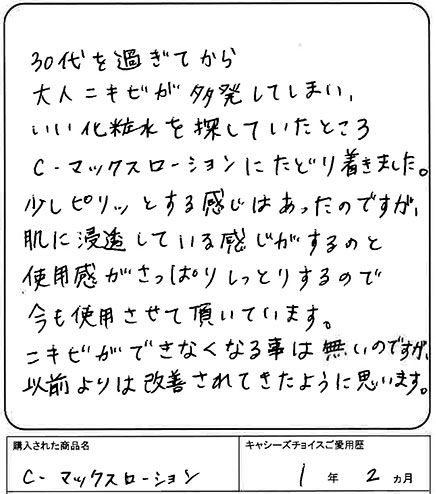 30代を過ぎてから
大人ニキビが多発してしまい、
いい化粧水を探していたところ
C-マックスローションにたどり着きました。
少しピリッとする感じはあったのですが、
肌に浸透している感じがするのと
使用感がさっぱりしっとりするので
今も使用させて頂いています。
ニキビができなくなる事は無いのですが、
以前よりは改善されてきたように思います。
購入された商品名
キャシーズチョイスご愛用歴
C-マックスローション
1年2ヵ月